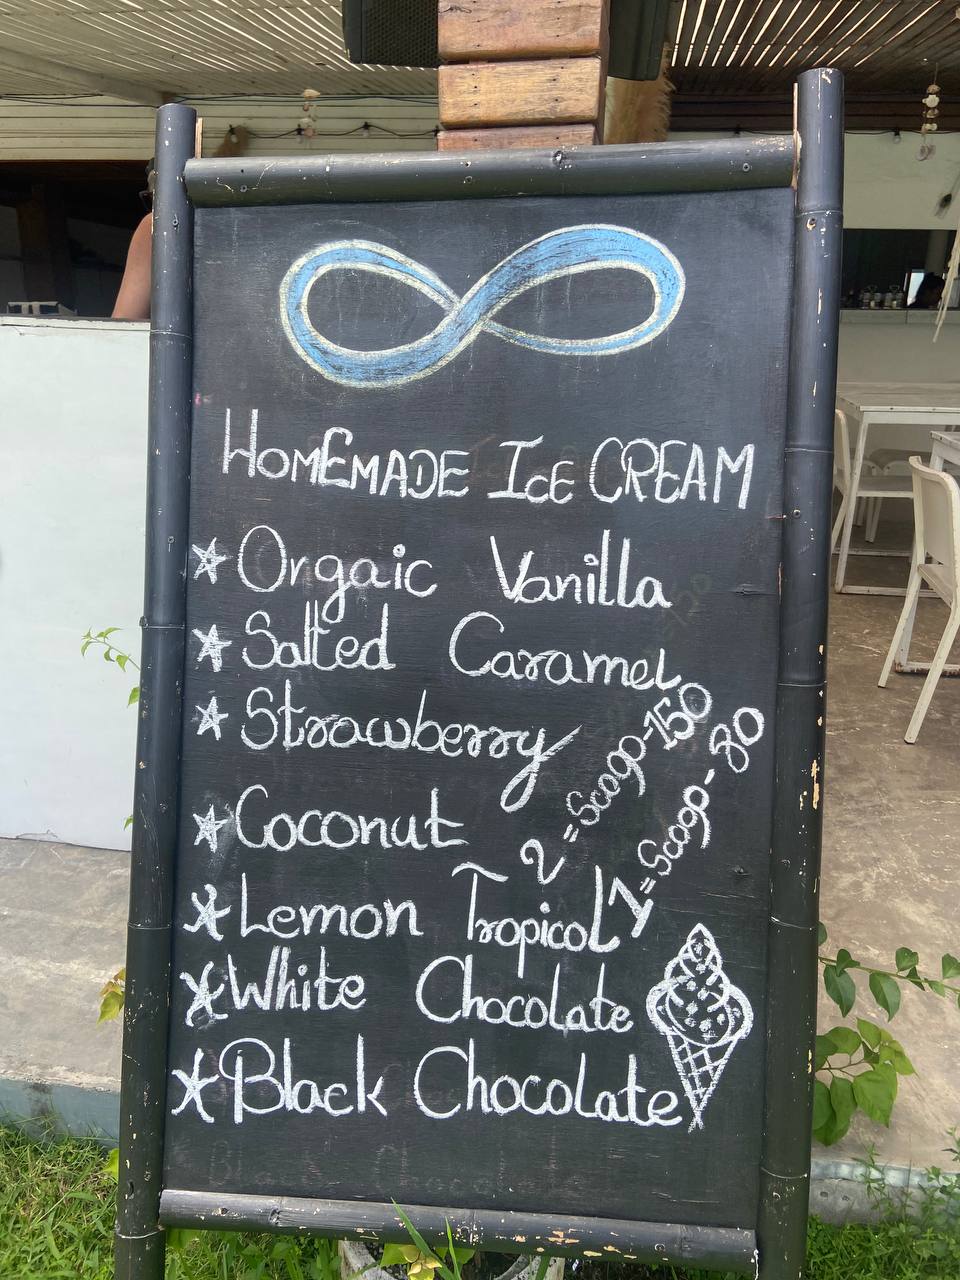 HOMEMADE ICE CREAM
Orgaic Vanilla
Salted Caramel
Strawberry
Coconut
Lemon Tropical
White Chocolate
Black Chocolate
2 = Scoop-150
1 = Scoop-80